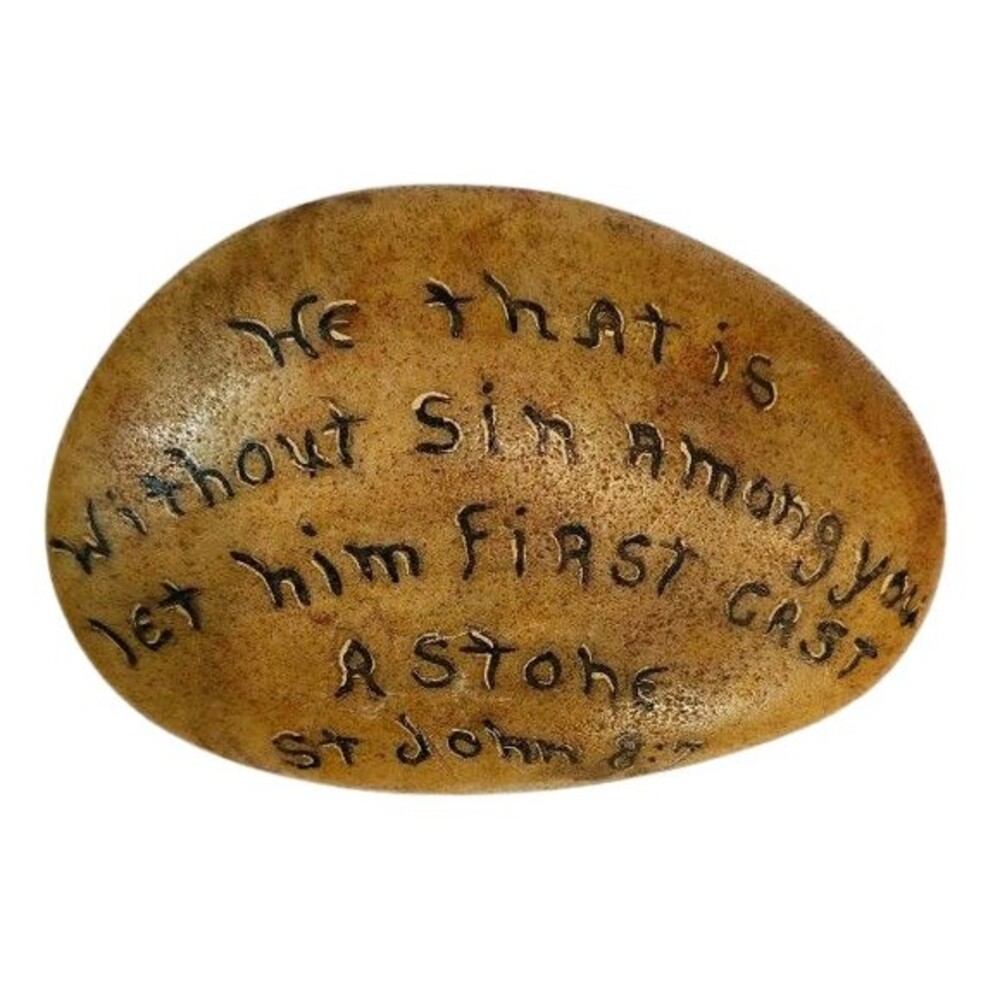 He thAt is
Without Sin Among you
let him FiRST CAST
A Stone
St John 8:7